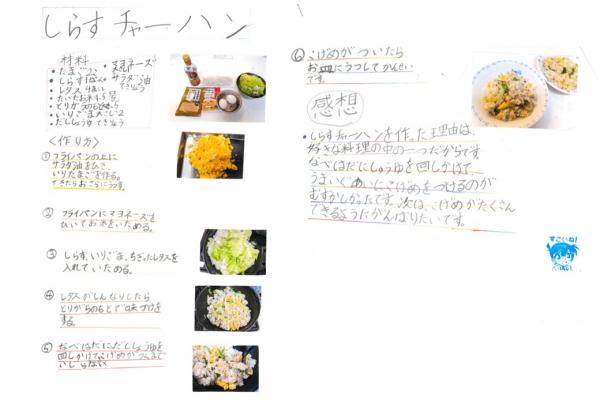 しらすチャーハン
材料
・たまご2こ
・しらす1ぱっく
・レタス4まい
・たいたお米1.5合
・とりがらのもと
・いりごま大さじ2
・だししょうゆ てきりょう
・マヨネーズ
サラダ油
てきりょう
<作り方>
①フライパンの上に
サラダ油をひき、
いりたまごを作る。
できたらおさらにうつす。
②フライパンにマヨネーズを
ひいてお米をいためる。
③しらす、いりごま、ちぎったレタスを
入れていためる。
④レタスがしんなりしたら
とりがらのもとで味つけを
する。
⑤なべはだにだししょうゆを
回しかけてこげめがつくまで
いじらない
⑥こげめがついたら
お皿にうつしてかんせい
です。
感想
・しらすチャーハンを作った理由は、
好きな料理の中の一つだからです。
なべはだにしょうゆを回しかけて、
うまいぐあいにこげめをつけるのが
むずかしかったです。次は、こげめがたくさん
できるようにがんばりたいです。
すごいね!